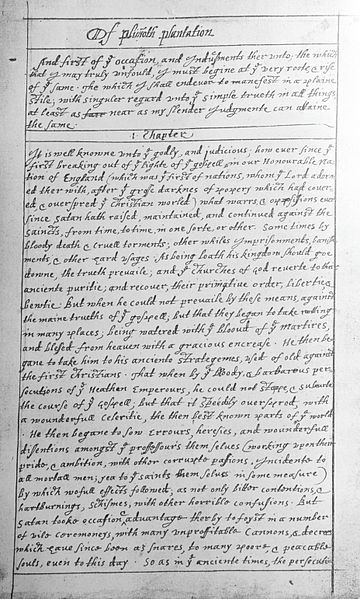 Of plimoth plantation
And first of yᵉ occasion, and Indusments ther unto; the which
that I may truly unfould, I must begine at yᵉ very roote, & rise
of yᵉ same. The which I shall endevor to manefest in a plaine
stile; with singuler regard unto yᵉ simple trueth in all things,
at least as near as my slender Judgmente can attaine
the same.
1. Chapter
It is well knowne unto yᵉ godly, and judicious, how ever since yᵉ
first breaking out of yᵉ lighte of yᵉ gospell, in our Honourable na-
tion of England (which was yᵉ first of nations, whom yᵉ Lord adorn-
ed ther with, after yᵉ grosse darknes of popery which had cover-
ed & overspred yᵉ christian world) what warrs, & oppossitions ever
since satan hath raised, maintained, and continued against the
saincts, from time, to time, in one sorte, or other. Some times by
bloody death & cruell torments; other whiles Imprisonments, banish-
ments, & other hard usages. As being loath his kingdom should goe
downe, the trueth prevaile; and yᵉ churches of god reverte to their
anciente puritie; and recover, their primative order, libertie, &
bewtie. But when he could not prevaile by these means, against
the maine trueths of yᵉ gospell; but that they began to take rooting
in many places; being watered with yᵉ blooud of yᵉ martires,
and blesed from heaven with a gracious encrease. He then be-
gane to take him to his anciente strategemes, used of old against
the first christians. That when by yᵉ bloody, & barbarous per-
secutions of yᵉ Heathen Emperours, he could not stoppe, & subverte
the course of yᵉ gospell; but that it speedily overspred, with
a wounderfull celeritie, the then best known parts of yᵉ world.
He then begane to sow errours, heresies, and wounderfull
disentions amongst yᵉ professours them selves (working upon their
pride, & ambition, with other corrupte passions, Incidente to
all mortall men; yea to yᵉ saints them selves in some measure)
by which wofull effects followed; as not only bitter contentions, &
hartburnings, schismes, with other horrible confusions. But
satan tooke occasion & advantage therby to foyst in a number
of vile ceremoneys, with many unproffitable cannons, & decrees
which have since been as snares, to many poore, & peaceable
souls, even to this day. So as in yᵉ anciente times, the persecuti-